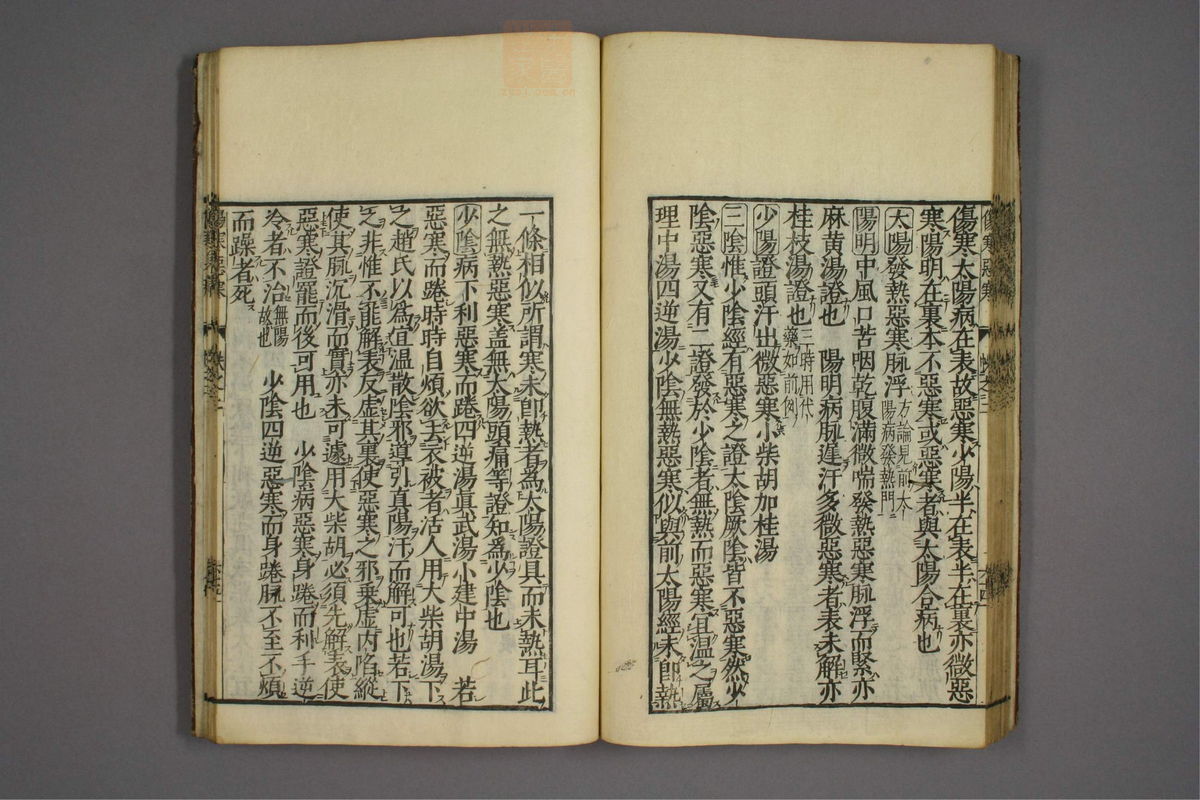 傷寒太陽病在表故惡寒少陽半在表半在裏亦微惡
寒陽明在裏本不惡寒或惡寒者與太陽合病也
太陽發熱惡寒脉浮方論見前太陽病發熱門
陽明中風口苦咽乾腹滿微喘發熱惡寒脉浮而緊亦
麻黄湯證也　陽明病脉遲汗多微惡寒者表未解亦
桂枝湯證也三時用代藥如前例
少陽證頭汗出微惡寒小柴胡加桂湯
三陰惟少陰經有惡寒之證太陰厥陰皆不惡寒然少
陰惡寒又有二證發於少陰者無熱而惡寒宜温之屬
理中湯四逆湯少陰無熱惡寒似與前太陽經未即熱
一條相似所謂寒未即熱者爲太陽證具而未熱耳此
之無熱惡寒盖無太陽頭痛等證知爲少陰也
少陰病下利惡寒而踡四逆湯眞武湯小建中湯　若
惡寒而踡時時自煩欲去衣被者活人用大柴胡湯下
之趙氏以爲宜温散陰邪導引真陽汗而解可也若下
之非惟不能解表反虚其裏使惡寒之邪乗虚内陷縱
使其脉沉滑而實亦未可遽用大柴胡必須先解表使
惡寒證罷而後可用也　少陰病惡寒身踡而利手逆
冷者不治無陽故也　少陰四逆惡寒而身踡脉不至不煩
而躁者死